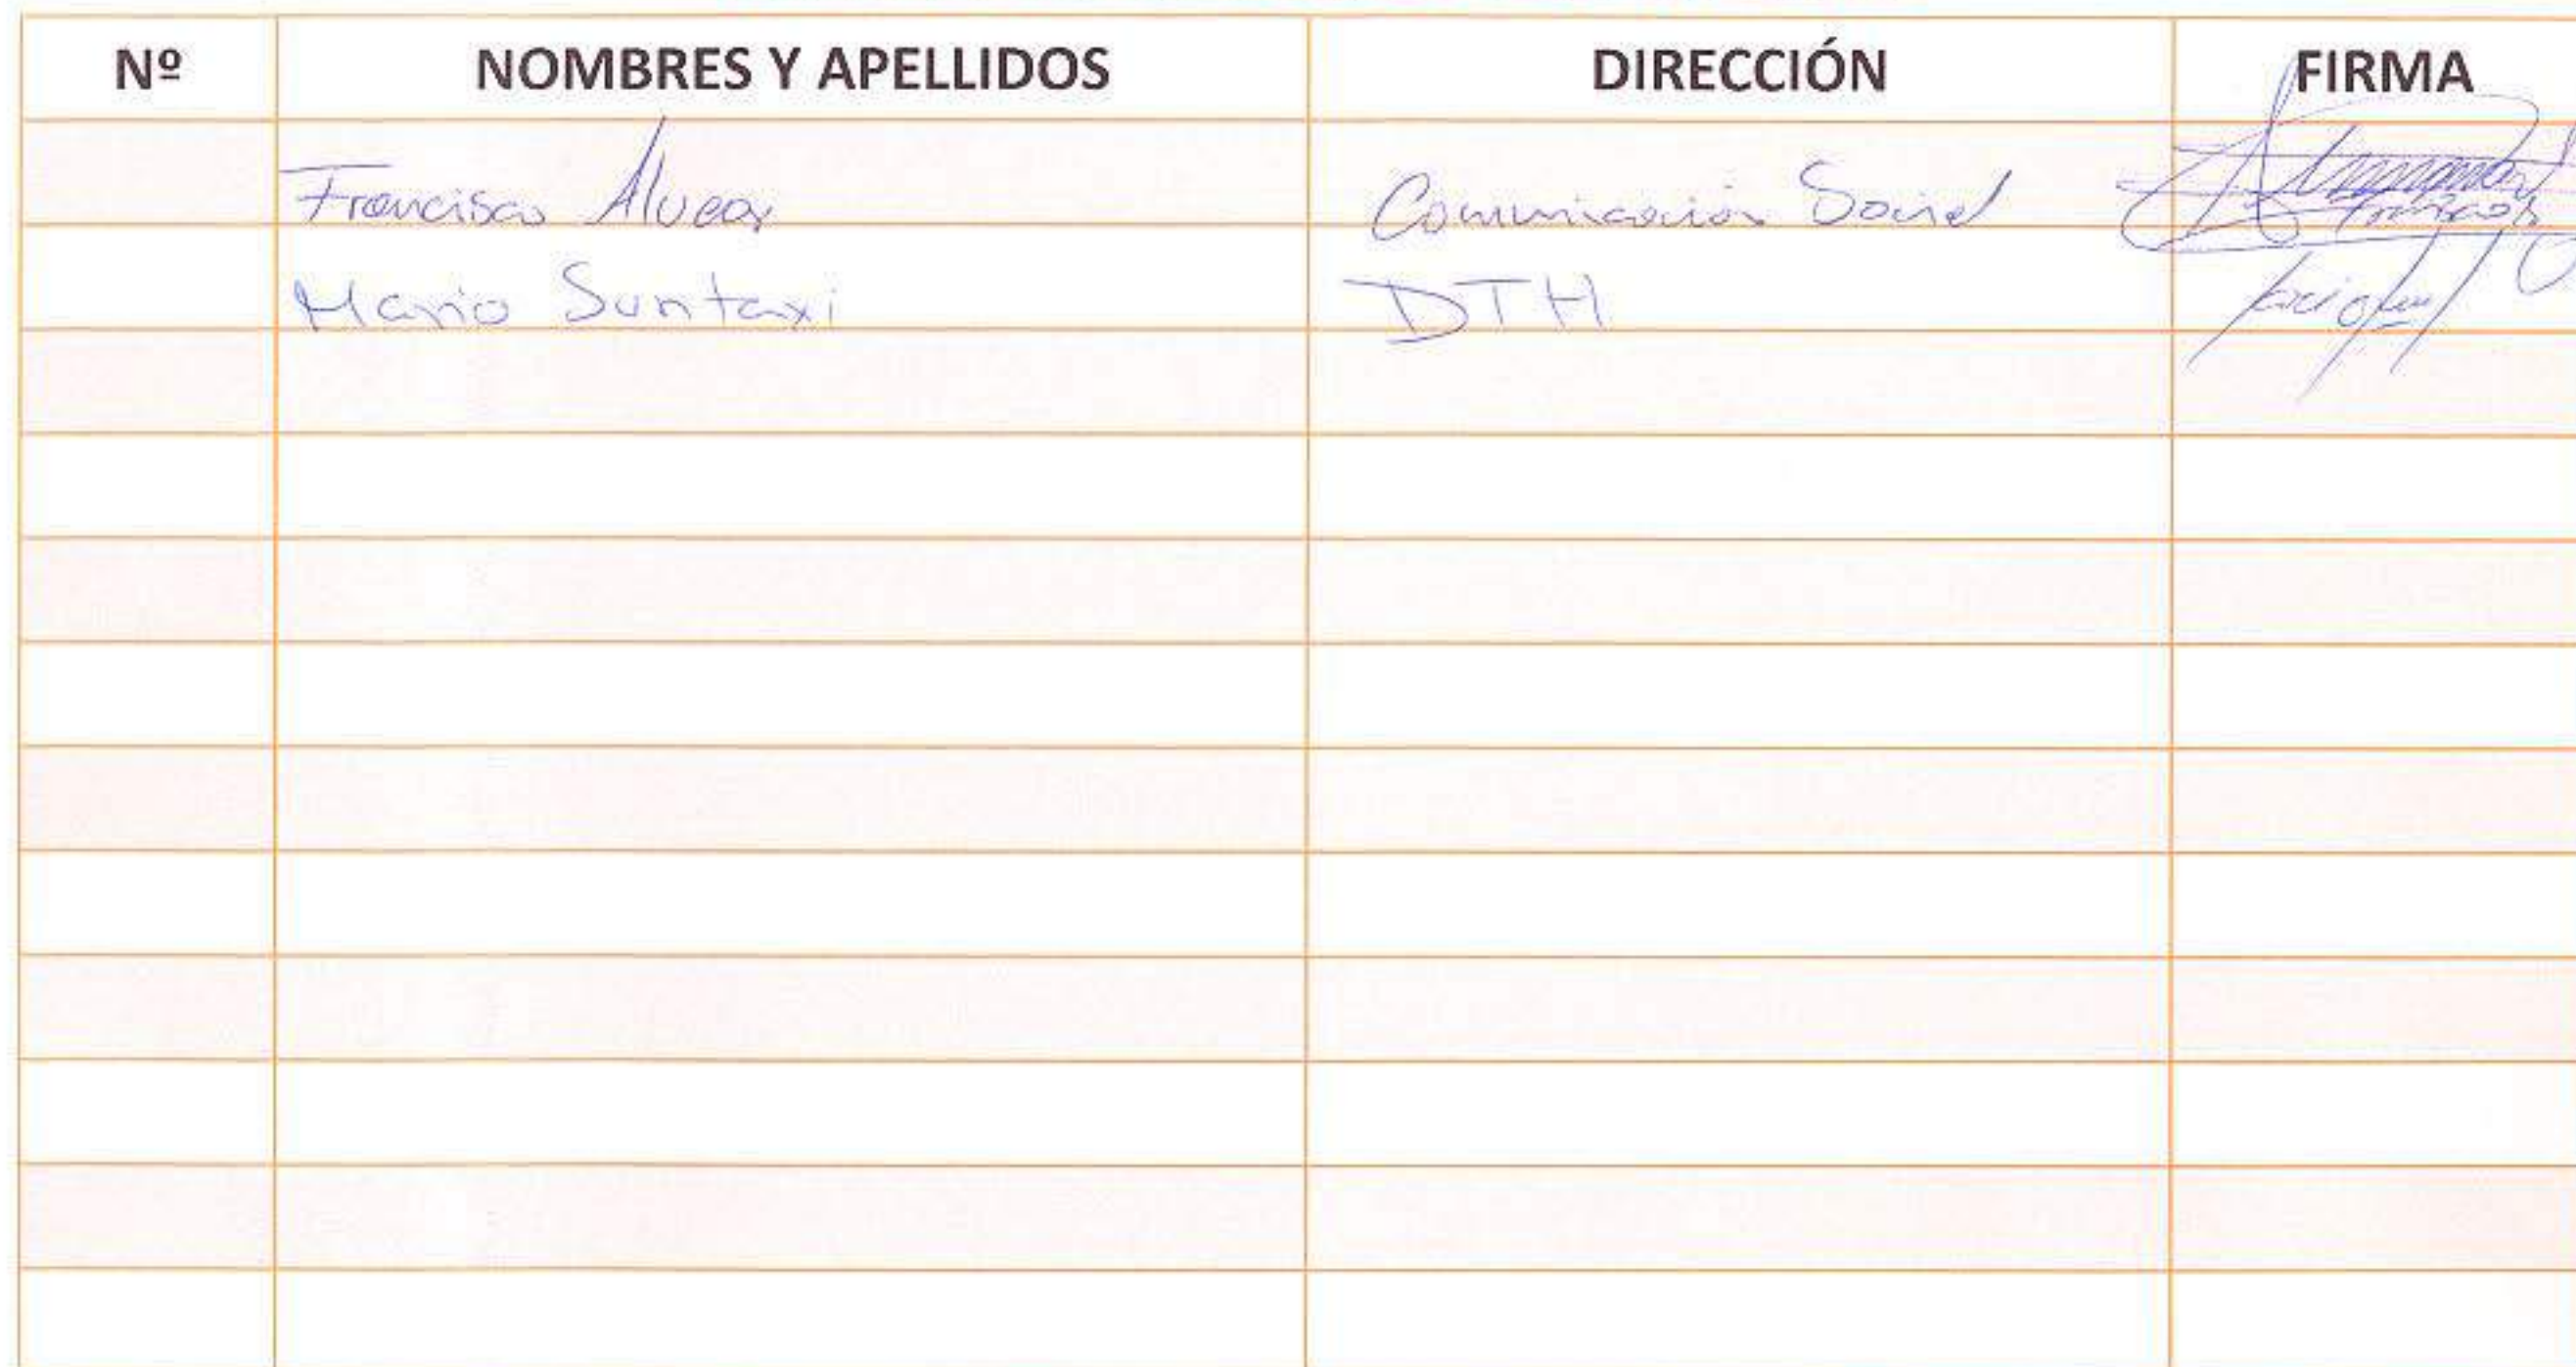 Nº NOMBRES Y APELLIDOS DIRECCIÓN FIRMA
Francisco Alvear Comunicación Social
Mario Suntaxi DTH